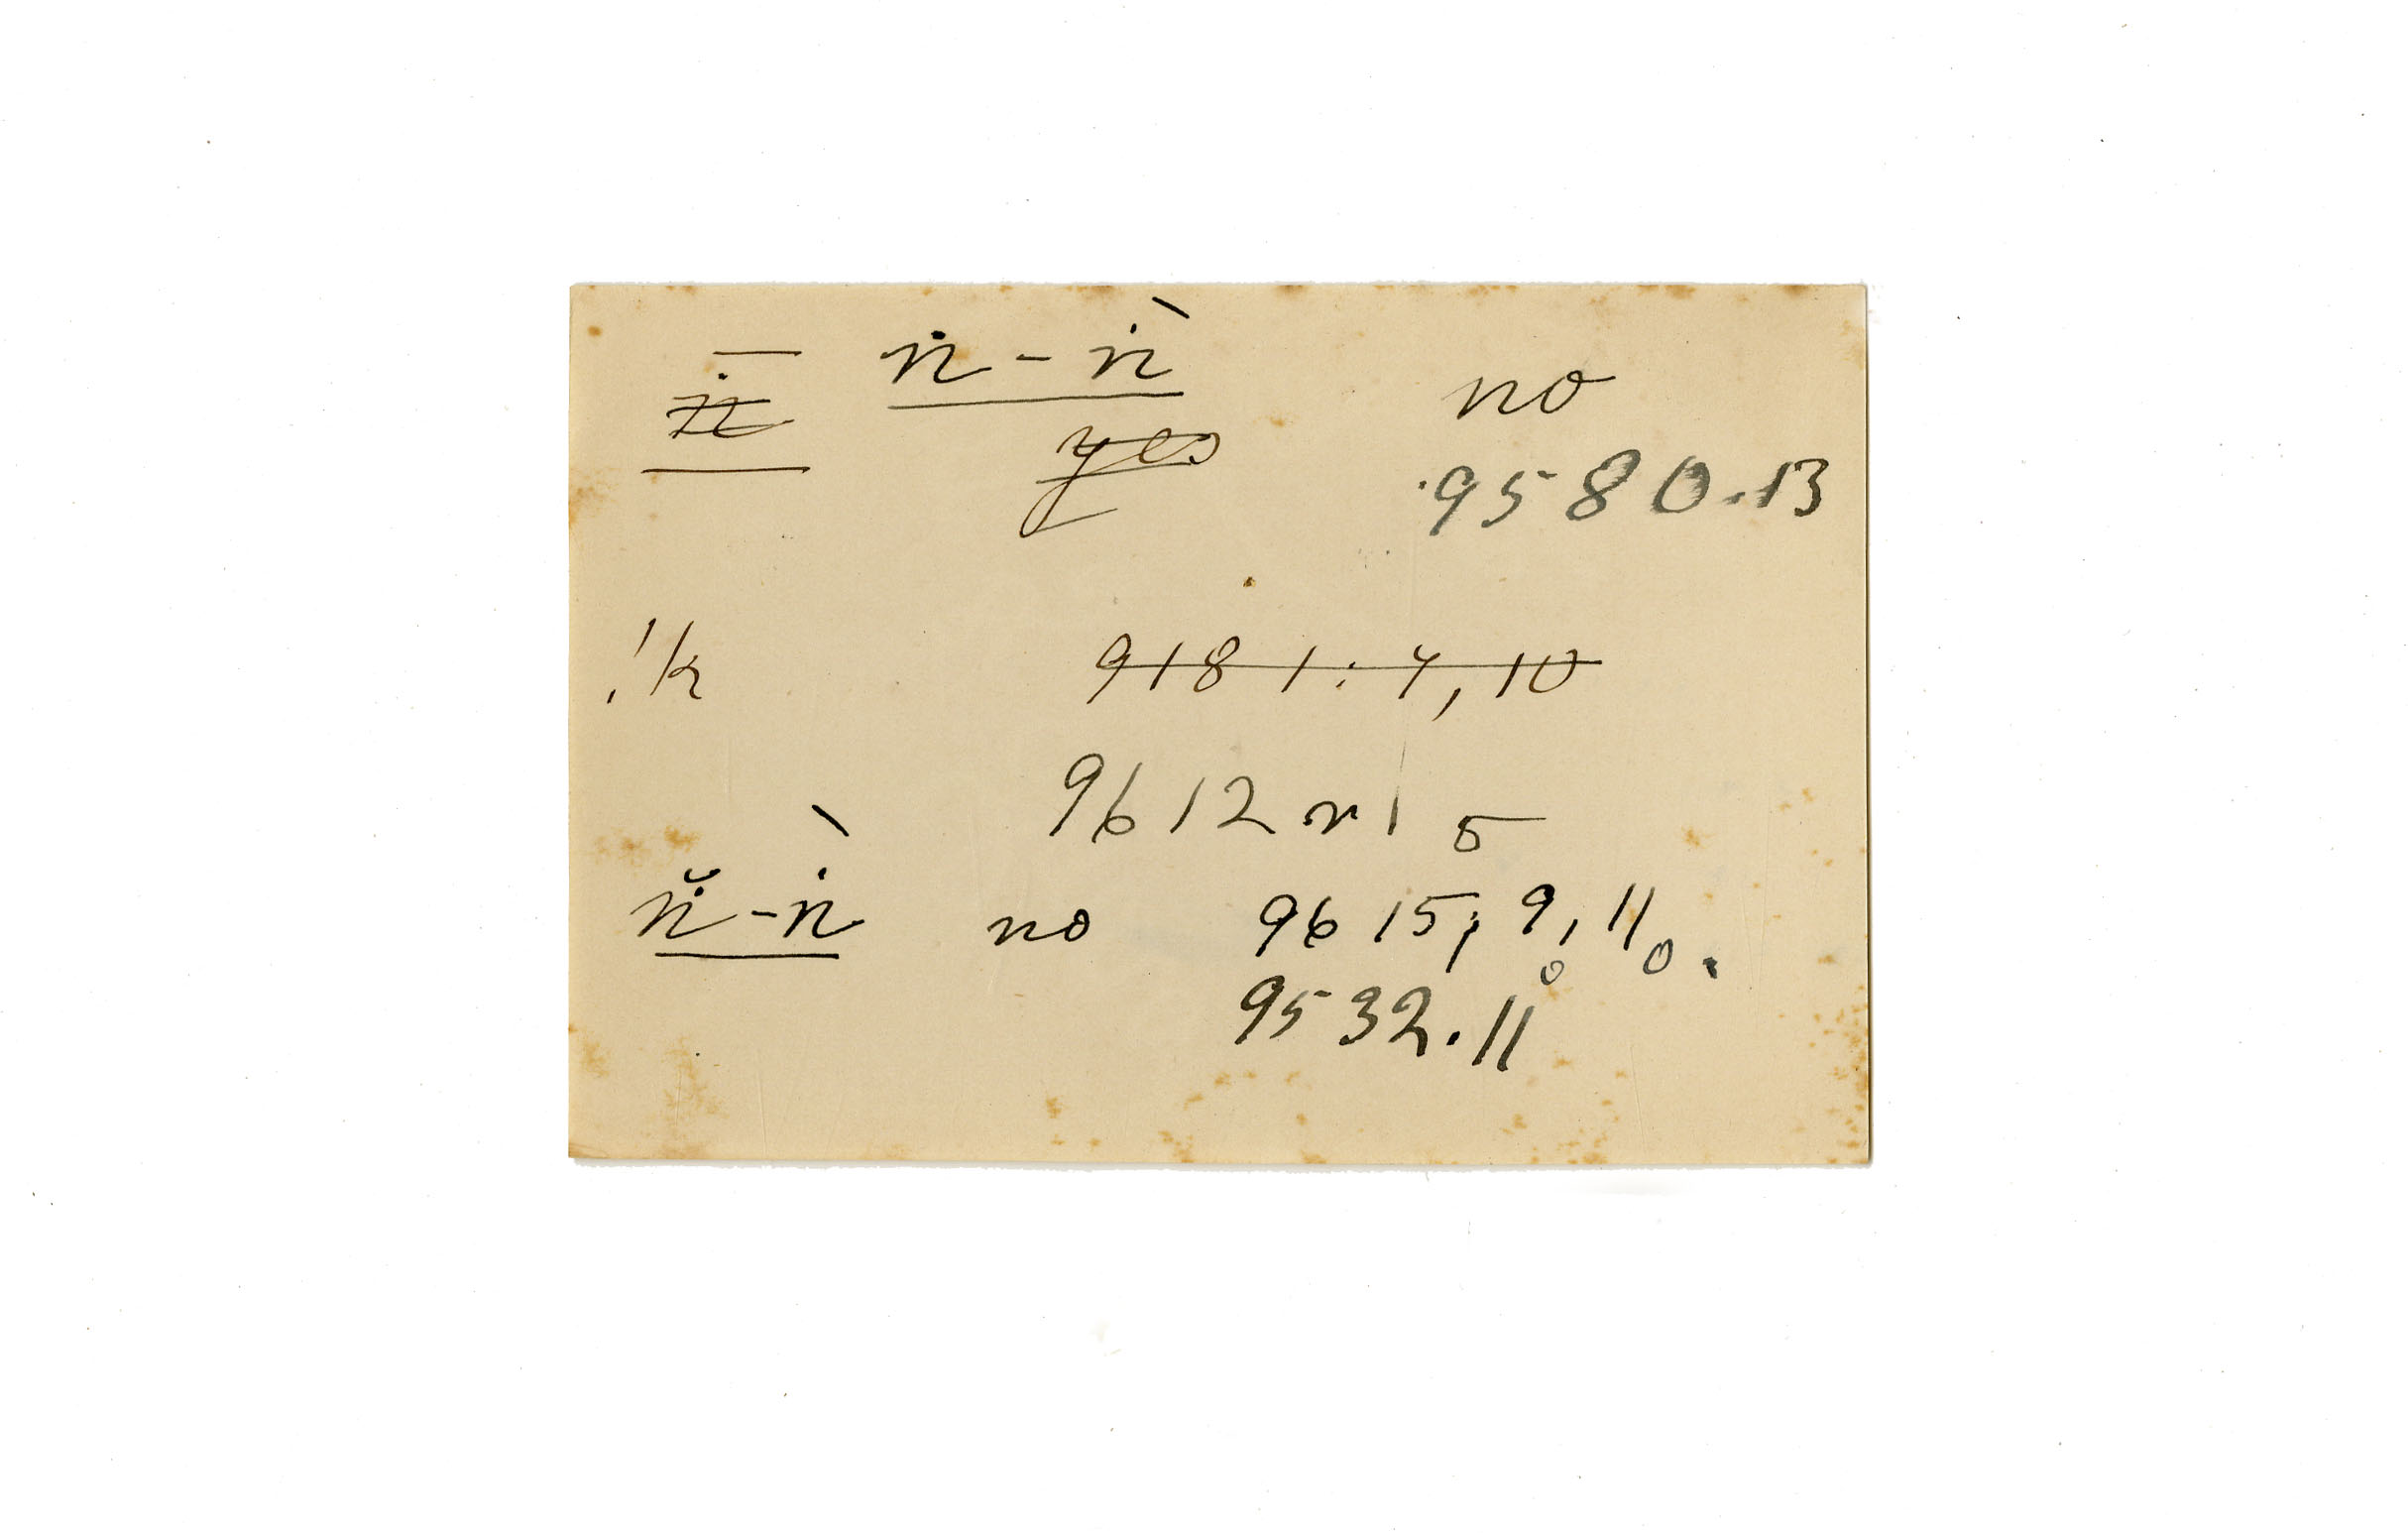 ṅ - ṅ̀ no
yes
9580.13
!k 9181:4,10
9612 r 1 5
ṅ̆ - ṅ̀ no 9615; 9, 11o.
9532.11o